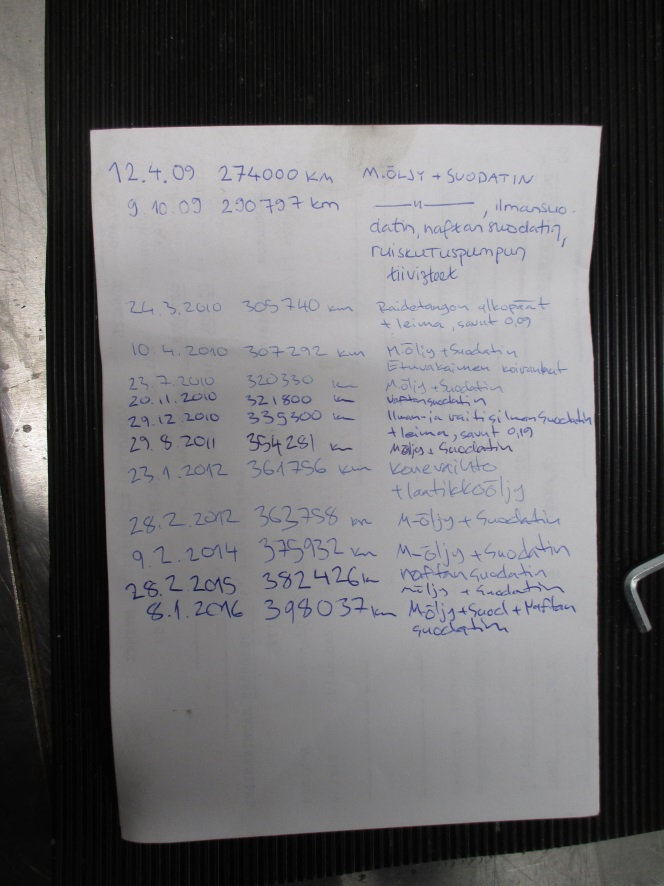 12.4.09 274000 KM M.ÖLJY + SUODATIN
9.10.09 290797 km —"—, ilmansuo-
datin, naftansuodatin,
ruiskutuspumpun
tiivisteet
24.3.2010 305740 km Raidetangon ulkopäät
+ leima, savut 0,09
10.4.2010 307292 km M-öljy + Suodatin
Etuvakaimen koiranluut
23.7.2010 320330 km M-öljy + Suodatin
20.11.2010 321800 km naftansuodatin
29.12.2010 339300 km Ilman- ja raitisilmansuodatin
+ leima, savut 0,19
29.8.2011 354281 km Möljy + Suodatin
23.1.2012 361756 km konevaihto
+ laatikkoöljy
28.2.2012 363758 km M-öljy + Suodatin
9.2.2014 375932 km M-öljy + Suodatin
28.2.2015 382426 km naftansuodatin
möljy + Suodatin
8.1.2016 398037 km M-öljy + Suod + Naftan
suodatin